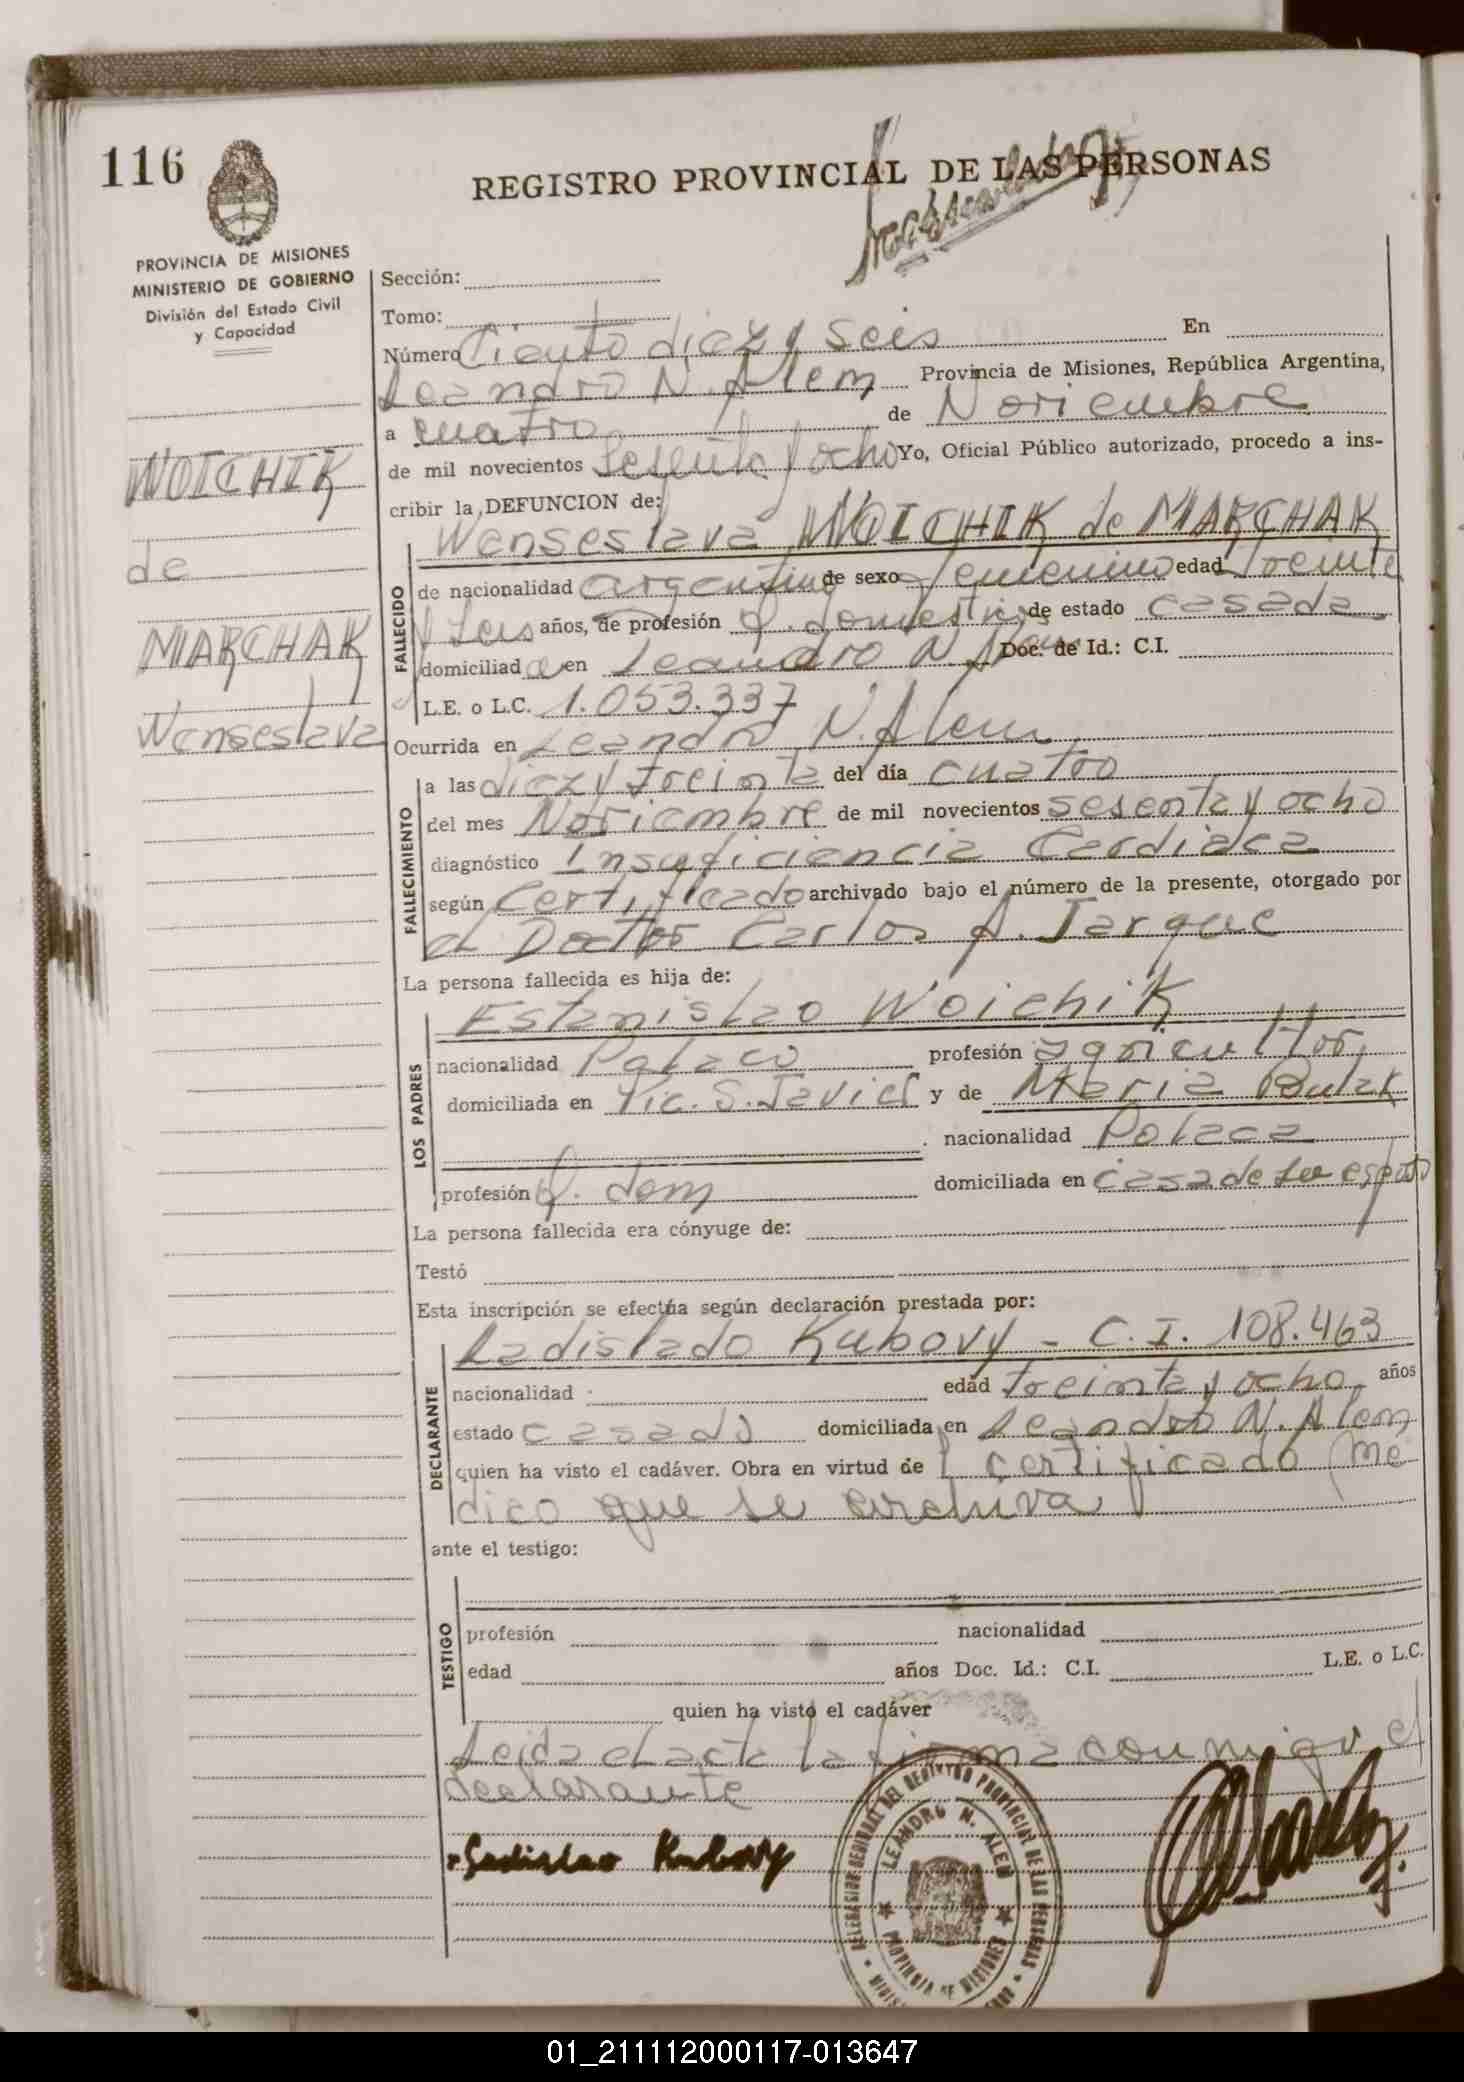 116
REGISTRO PROVINCIAL DE LAS PERSONAS
PROVINCIA DE MISIONES
MINISTERIO DE GOBIERNO
División del Estado Civil
y Capacidad
Sección:
Tomo:
Número Ciento diez y seis En
Leandro N. Alem Provincia de Misiones, República Argentina,
a cuatro de Noviembre
de mil novecientos Sesenta y ocho Yo, Oficial Público autorizado, procedo a ins-
cribir la DEFUNCION de:
WOICHIK
de
MARCHAK
Wenseslava
Wenseslava WOICHIK de MARCHAK
FALLECIDO
de nacionalidad argentina de sexo femenino edad Treinta
y Seis años, de profesión Q. domesticos de estado casada
domiciliad a en Leandro N. Alem Doc. de Id.: C.I.
L.E. o L.C. 1.053.337
Ocurrida en Leandro N. Alem
FALLECIMIENTO
a las diez y treinta del día cuatro
del mes Noviembre de mil novecientos sesenta y ocho
diagnóstico Insuficiencia Cardiaca
según Certificado archivado bajo el número de la presente, otorgado por
el Doctor Carlos A. Jarque
La persona fallecida es hija de:
LOS PADRES
Estanislao Woichik
nacionalidad Polaco profesión agricultor
domiciliada en Pic. S. Javier y de Maria Bulak
nacionalidad Polaca
profesión Q. dom domiciliada en casa de su esposo
La persona fallecida era cónyuge de:
Testó
Esta inscripción se efectúa según declaración prestada por:
DECLARANTE
Ladislado Kubovy - C.I. 108.463
nacionalidad edad treinta y ocho años
estado casado domiciliada en Leandro N. Alem
quien ha visto el cadáver. Obra en virtud de l certificado me
dico que se archiva
ante el testigo:
TESTIGO
profesión nacionalidad
edad años Doc. Id.: C.I. L.E. o L.C.
quien ha visto el cadáver
Leida el acta la firma conmigo el
declarante
Ladislao Kubovy
DELEGACION SECCIONAL DEL REGISTRO PROVINCIAL DE LAS PERSONAS
LEANDRO N. ALEM
PROVINCIA DE MISIONES
01_211112000117-013647